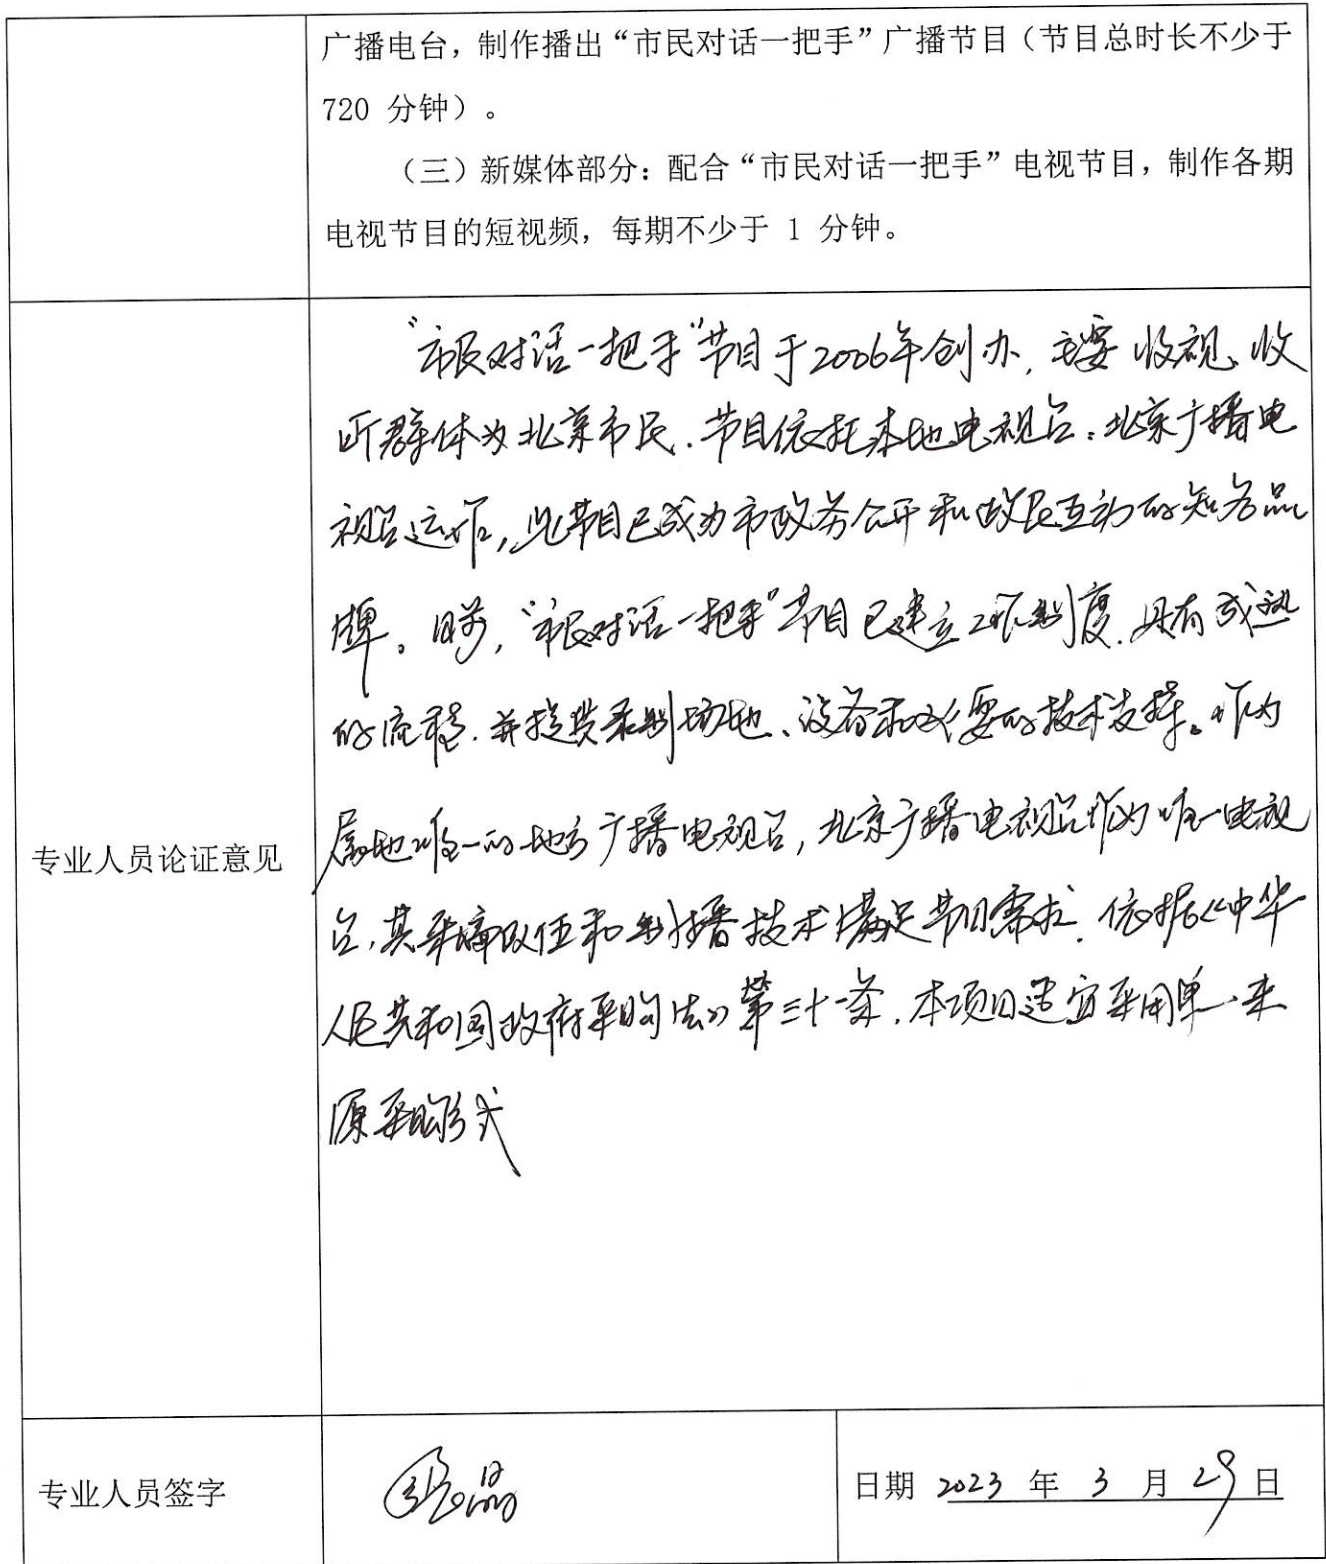 广播电台，制作播出“市民对话一把手”广播节目（节目总时长不少于
720 分钟）。
（三）新媒体部分：配合“市民对话一把手”电视节目，制作各期
电视节目的短视频，每期不少于 1 分钟。
专业人员论证意见
“市民对话一把手”节目于2006年创办，主要收视、收
听群体为北京市民．节目依托本地电视台：北京广播电
视台运作，此节目已成为市政务公开和政民互动的知名品
牌。目前，“市民对话一把手”节目已建立工作制度．具有成熟
的流程．并提供录制场地、设备和必要的技术支撑。作为
属地唯一的地方广播电视台，北京广播电视台作为唯一电视
台，其采编队伍和制播技术满足节目需求．依据《中华
人民共和国政府采购法》第三十一条．本项目适宜采用单一来
源采购形式
专业人员签字
日期 2023 年 3 月 29 日